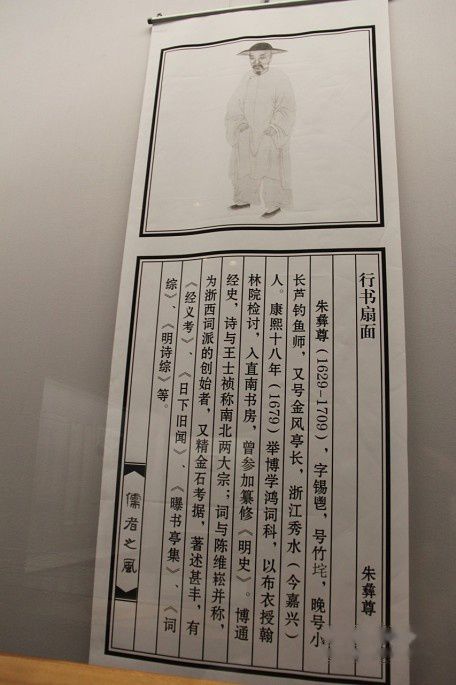 行书扇面 朱彝尊
朱彝尊（1629-1709），字锡鬯，号竹垞，晚号小
长芦钓鱼师，又号金风亭长，浙江秀水（今嘉兴）
人。康熙十八年（1679）举博学鸿词科，以布衣授翰
林院检讨，入直南书房，曾参加纂修《明史》。博通
经史，诗与王士祯称南北两大宗；词与陈维崧并称，
为浙西词派的创始者，又精金石考据，著述甚丰，有
《经义考》、《日下旧闻》、《曝书亭集》、《词
综》、《明诗综》等。
儒者之风